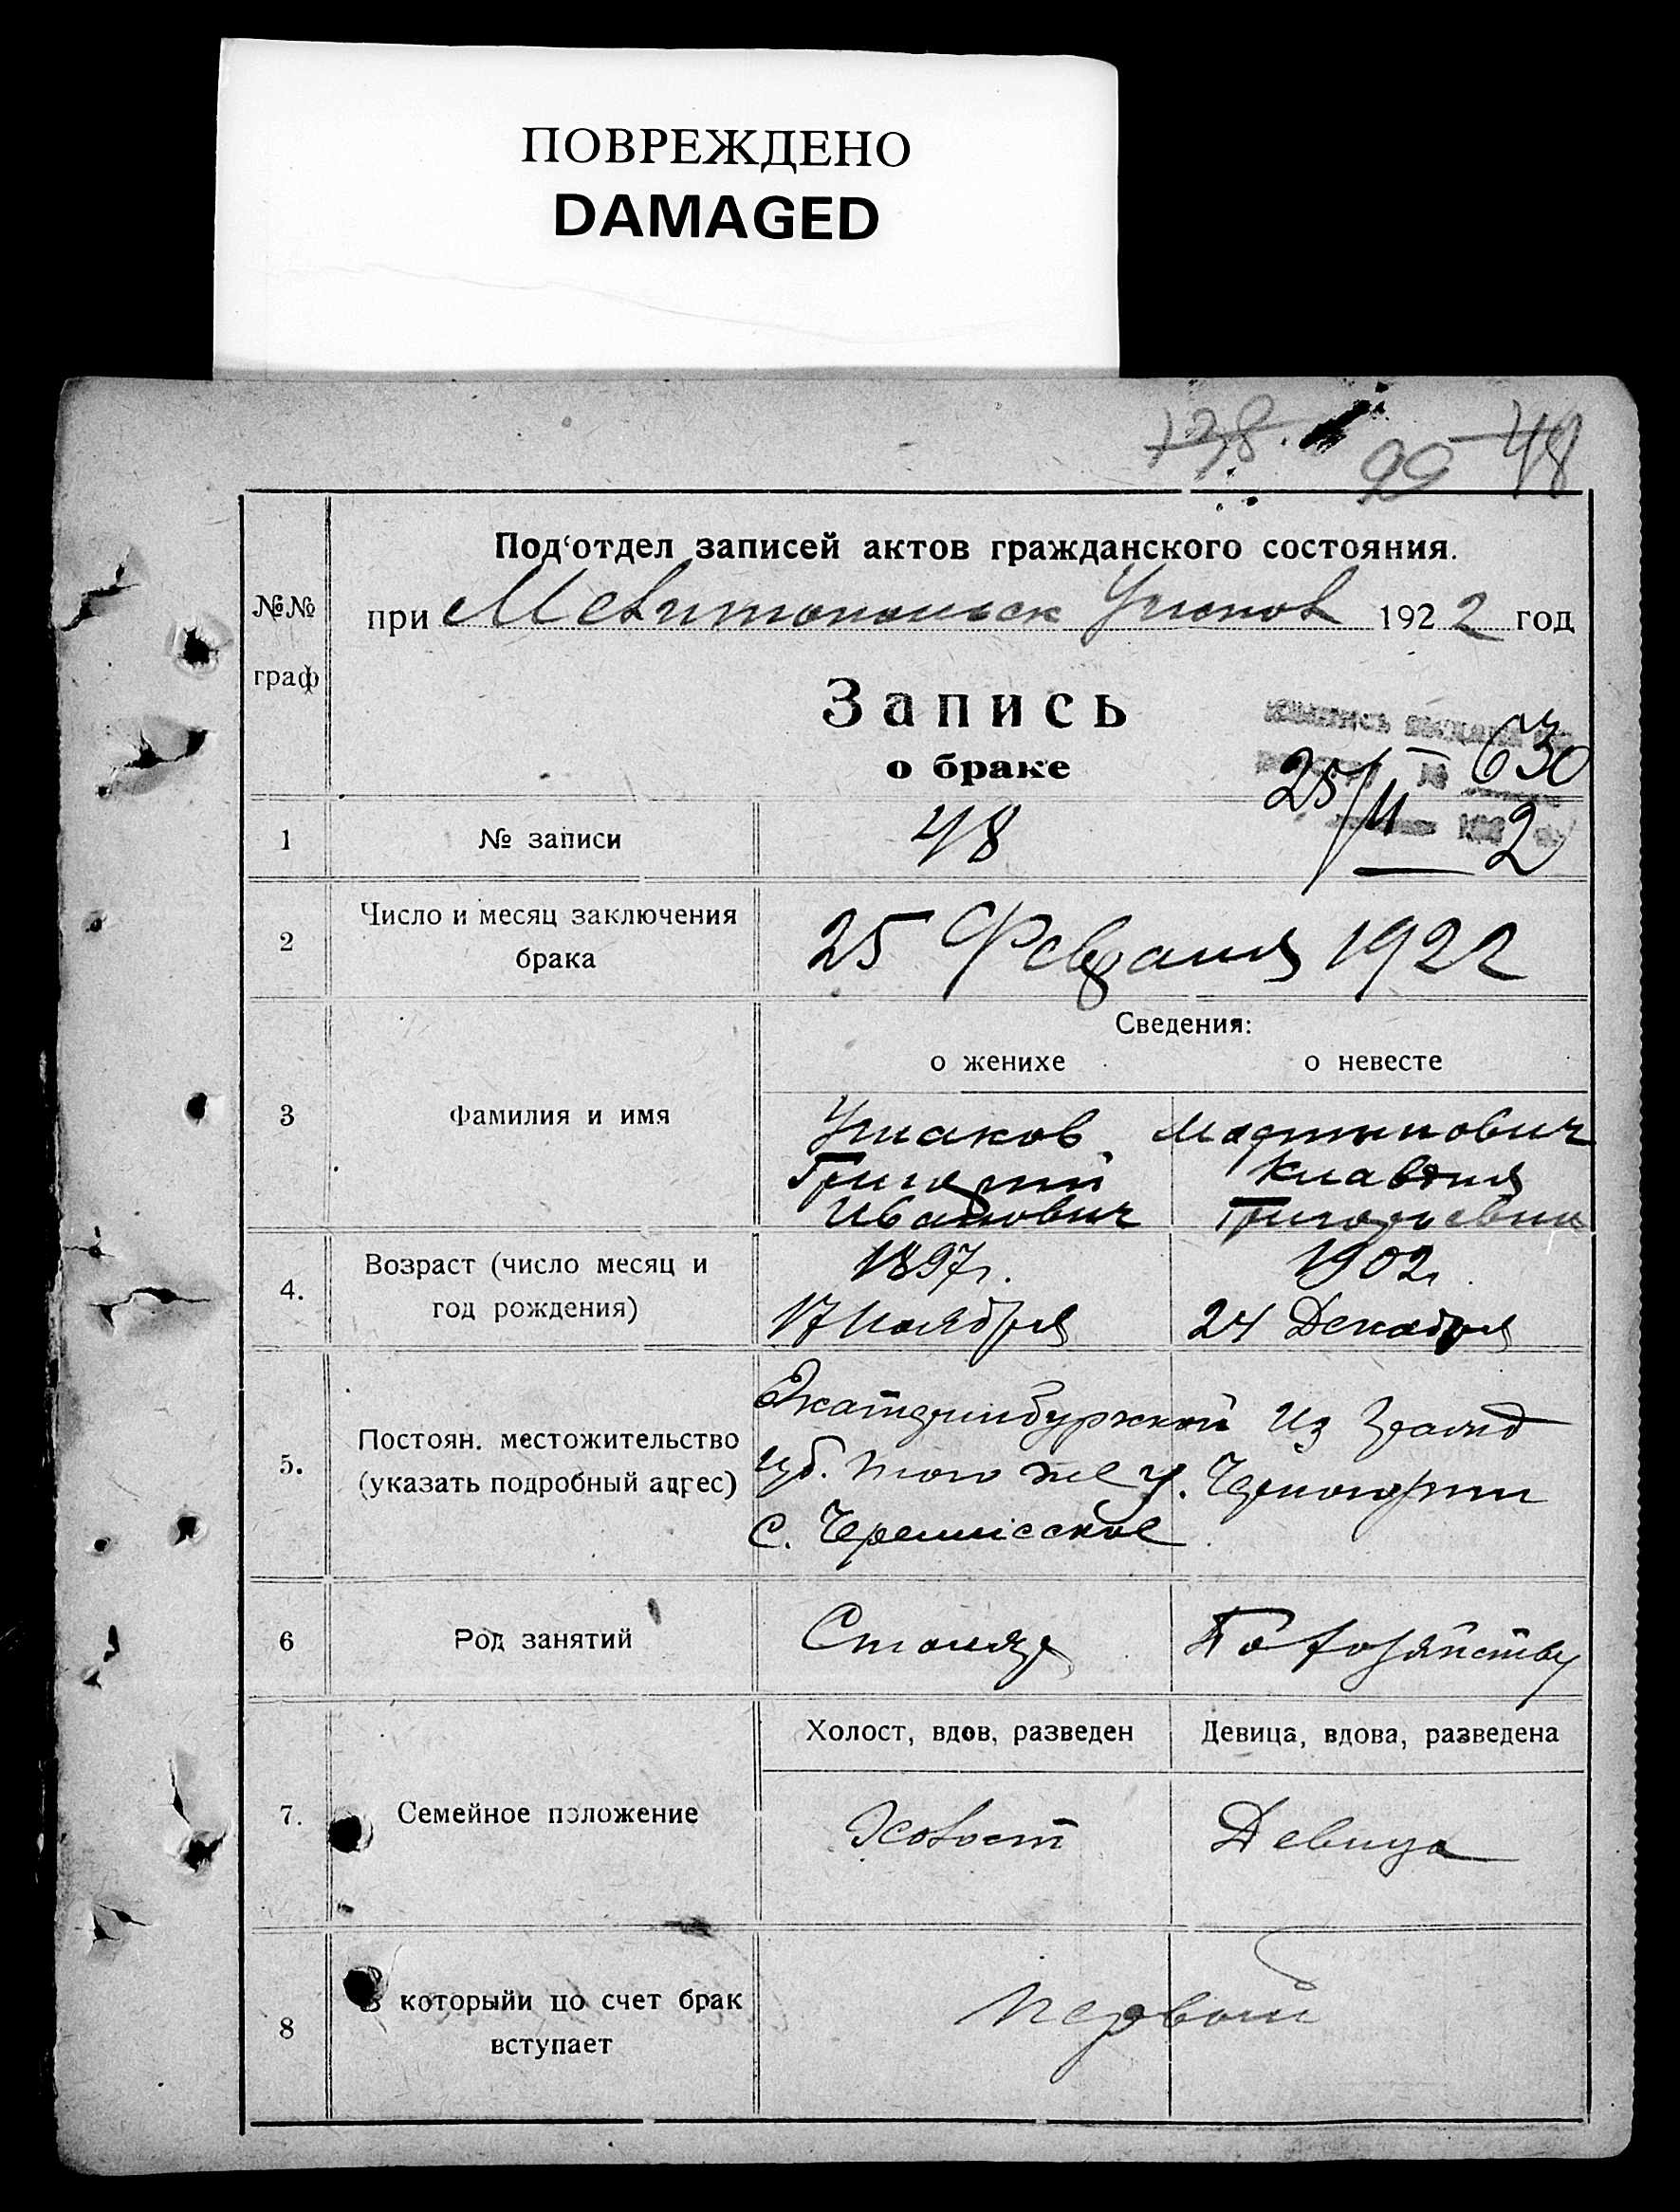 ПОВРЕЖДЕНО
DAMAGED
138. 99 48
Под'отдел записей актов гражданского состояния.
№№ граф
при Мелитопольск 1922 год
Запись
о браке
630
25/II 2
1 № записи 48
2 Число и месяц заключения
брака
25 Февраля 1922
Сведения:
о женихе о невесте
3 Фамилия и имя
Ушаков Мартинович
Григорий Клавдия
Иванович Григорьевна
4. Возраст (число месяц и
год рождения)
1897г. 1902г.
17 Ноября 24 Декабря
5. Постоян. местожительство
(указать подробный адрес)
Екатеринбуржской Из
губ. того же у.
с. Черемисское
6 Род занятий
Столяр По хозяйству
Холост, вдов, разведен Девица, вдова, разведена
7. Семейное положение
Холост Девица
8 В которыйи по счет брак
вступает
Первый